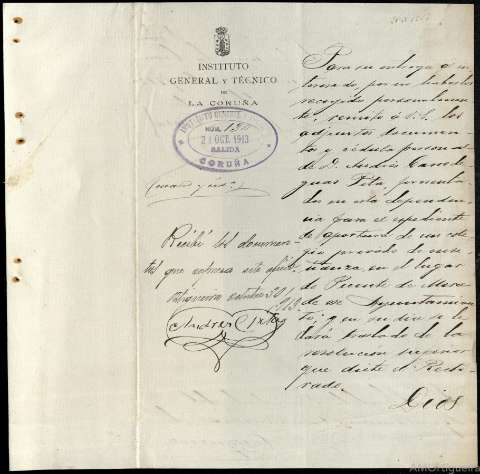 INSTITUTO
GENERAL Y TÉCNICO
DE
LA CORUÑA
INSTITUTO GENERAL
NÚM. 130
21 OCT. 1913
SALIDA
CORUÑA
Recibí los documen-
tos que expresa este oficio
Ortigueira octubre 30/913
Andrés Fita
Para su entrega al in-
teresado, por no haberlos
recogido personalmen-
te, remito á V.S. los
adjuntos documen-
tos y cédula personal
de D. Andrés Canel-
Fita, presenta-
dos en esta dependen-
cia para el expediente
de apertura de un cole-
gio privado de ense-
ñanza en el lugar
de Puente de Mera
de ese Ayuntamien-
to; que en su día se le
dará traslado de la
resolución superior
que dicte el Recto-
rado.
Dios
AMOrtigueira